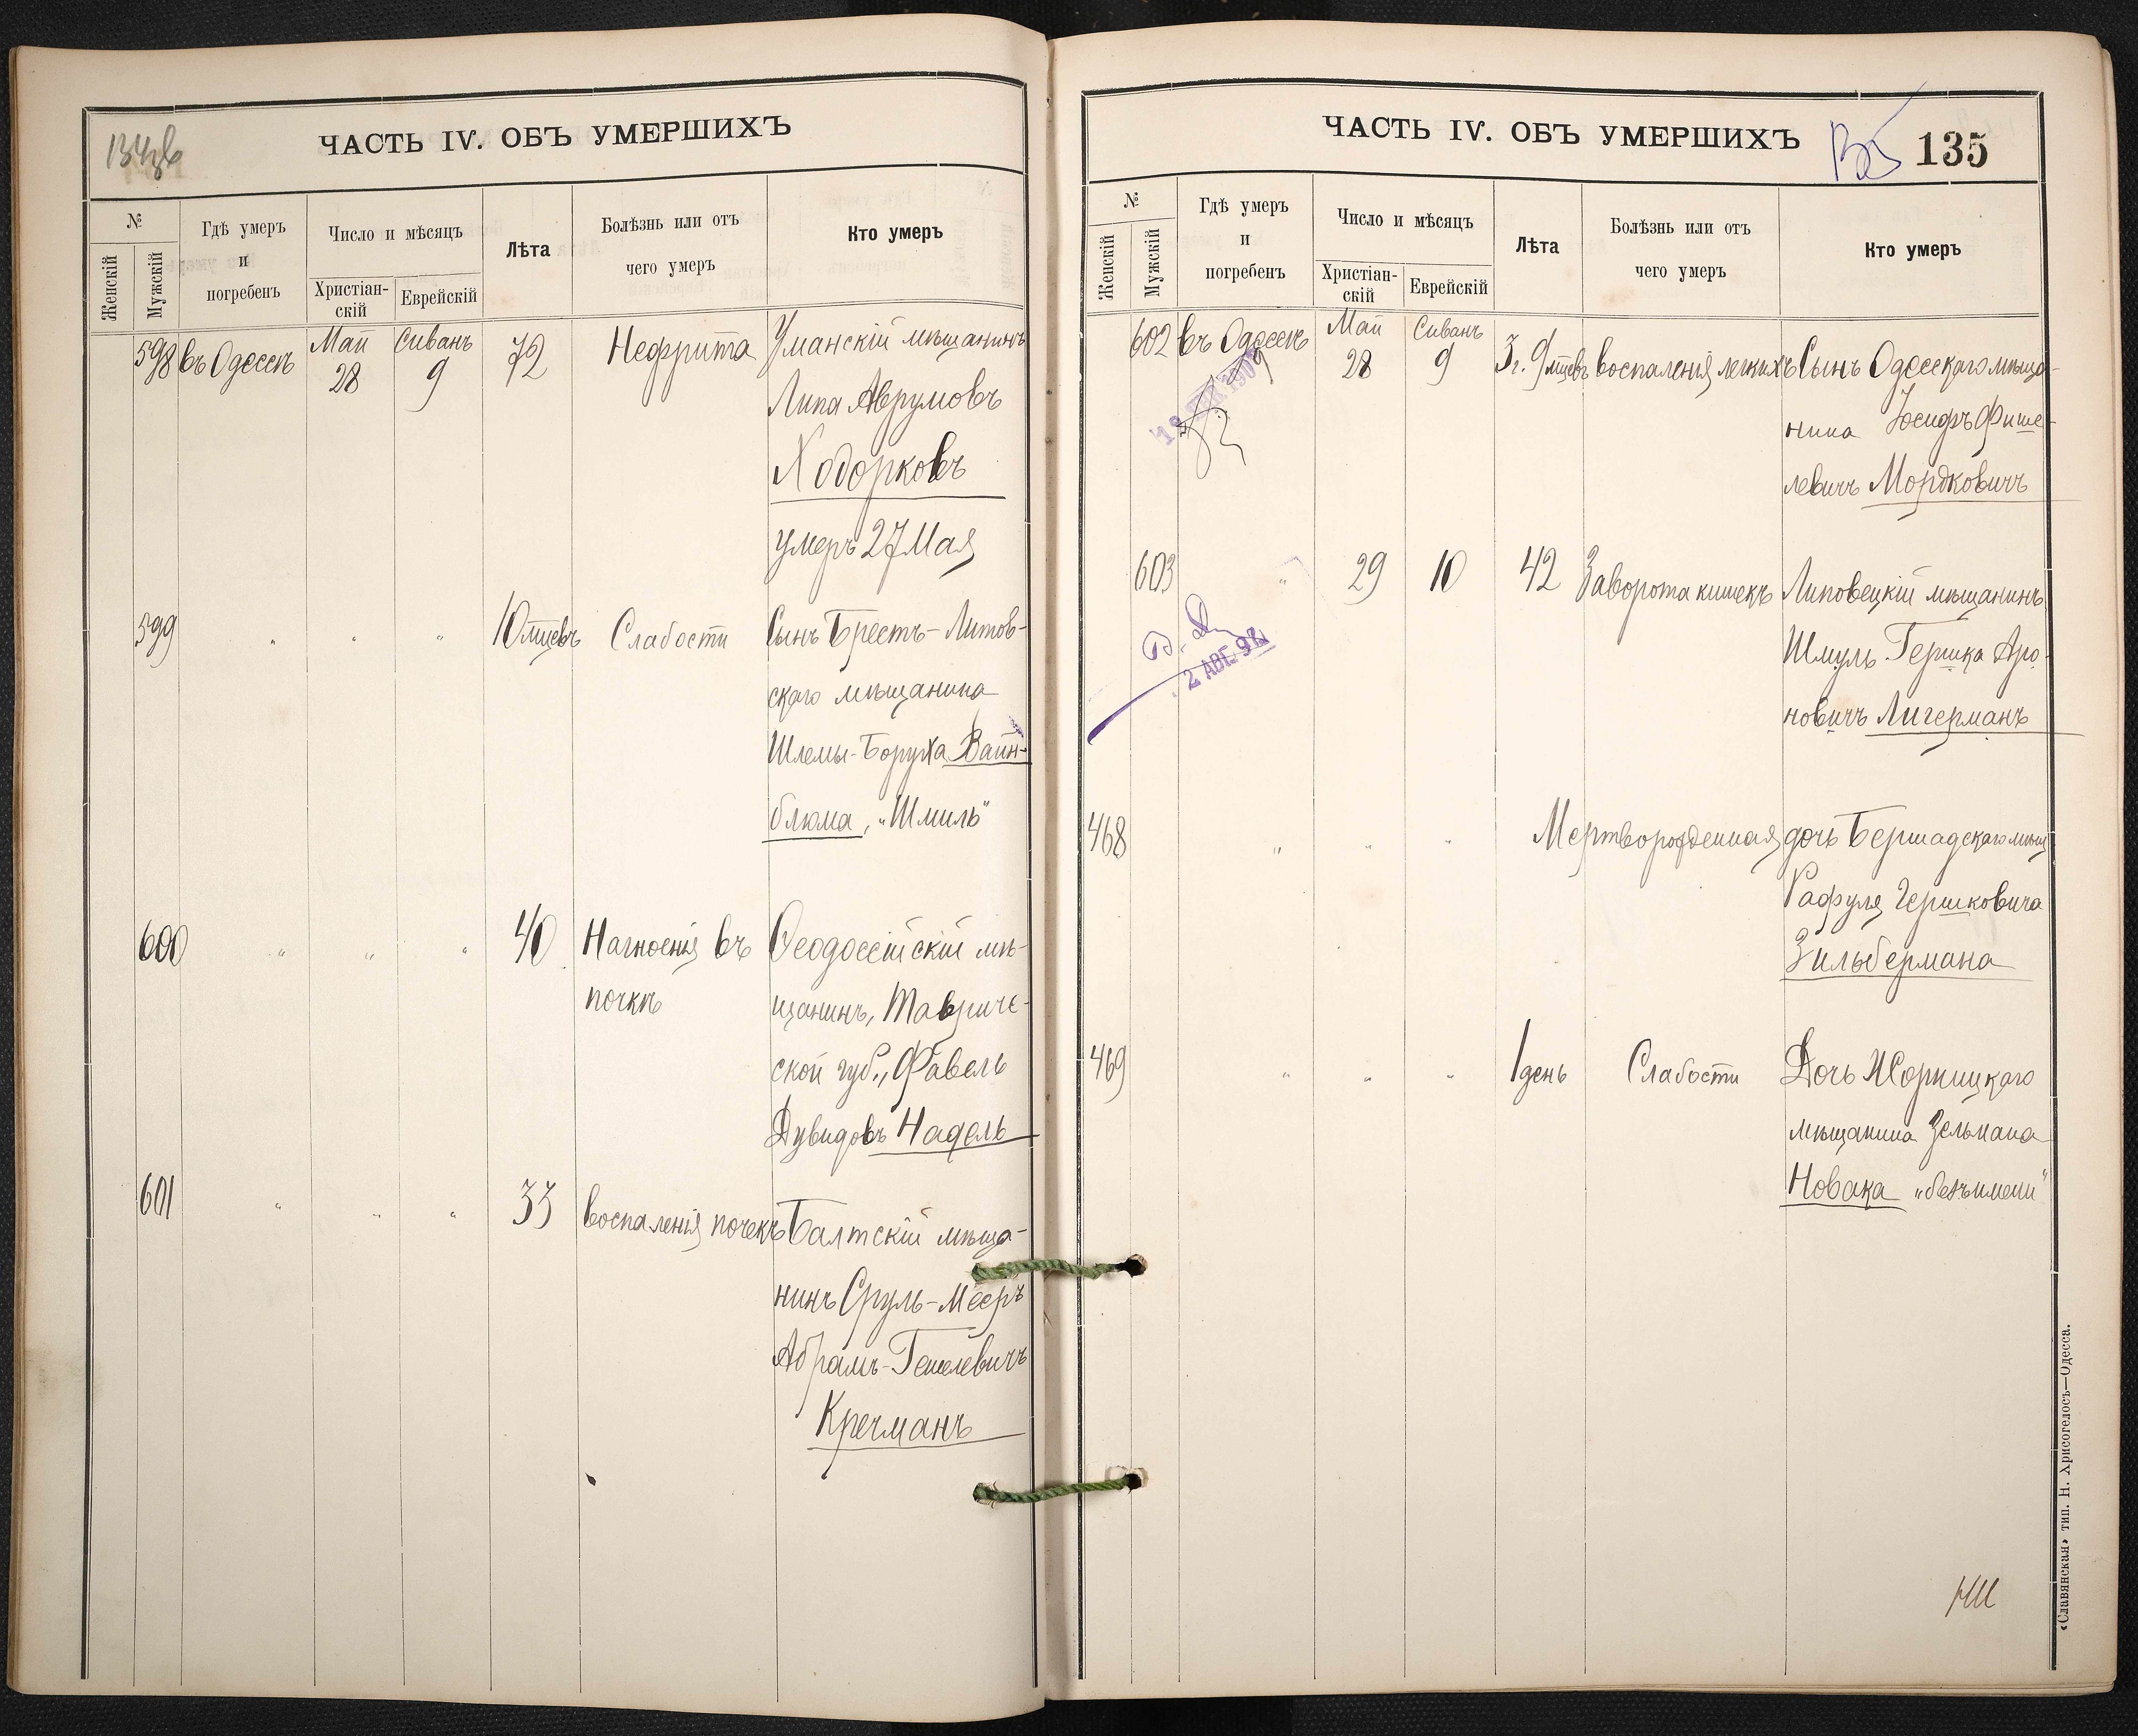 134об
ЧАСТЬ IV. ОБЪ УМЕРШИХЪ
№
Женскій
Мужскій
Гдѣ умеръ
и
погребенъ
Число и мѣсяцъ
Христіан-
скій
Еврейскій
Лѣта
Болѣзнь или отъ
чего умеръ
Кто умеръ
598 въ Одессѣ Май 28 Сиванъ 9 72 Нефрита Уманскій мѣщанинъ
Липа Аврумовъ
Ходорковъ
умеръ 27 Мая
599 " " " 10 мцевъ Слабости Сынъ Брестъ-Литов-
скаго мѣщанина
Шлемы-Боруха Вайн-
блюма, "Шмиль"
600 " " " 40 Нагноенія въ Ѳеодосійскій мѣ-
почкѣ щанинъ, Тавриче-
ской губ., Фавель
Дувидовъ Надель
601 " " " 33 воспаленія почекъ Балтскій мѣща-
нинъ Сруль-Мееръ
Абрамъ-Гешелевичъ
Кречманъ
ЧАСТЬ IV. ОБЪ УМЕРШИХЪ
135
№
Женскій
Мужскій
Гдѣ умеръ
и
погребенъ
Число и мѣсяцъ
Христіан-
скій
Еврейскій
Лѣта
Болѣзнь или отъ
чего умеръ
Кто умеръ
602 въ Одессѣ Май 28 Сиванъ 9 3 г. 9 мцевъ воспаленія легкихъ Сынъ Одесскаго мѣща-
нина Іосифъ Фише-
левичъ Мордковичъ
603 " 29 10 42 Заворота кишекъ Липовецкій мѣщанинъ
Шмуль Гершка Аро-
новичъ Лигерманъ
2 АВГ. 92
468 " " " Мертворожденная дочь Бершадскаго мѣщ
Рафуля Гершковича
Зильбермана
469 " " " 1 день Слабости Дочь Жорнищкаго
мѣщанина Зельмана
Новака "безъ имени"
«Славянская» тип. Н. Хрисогелосъ—Одесса.